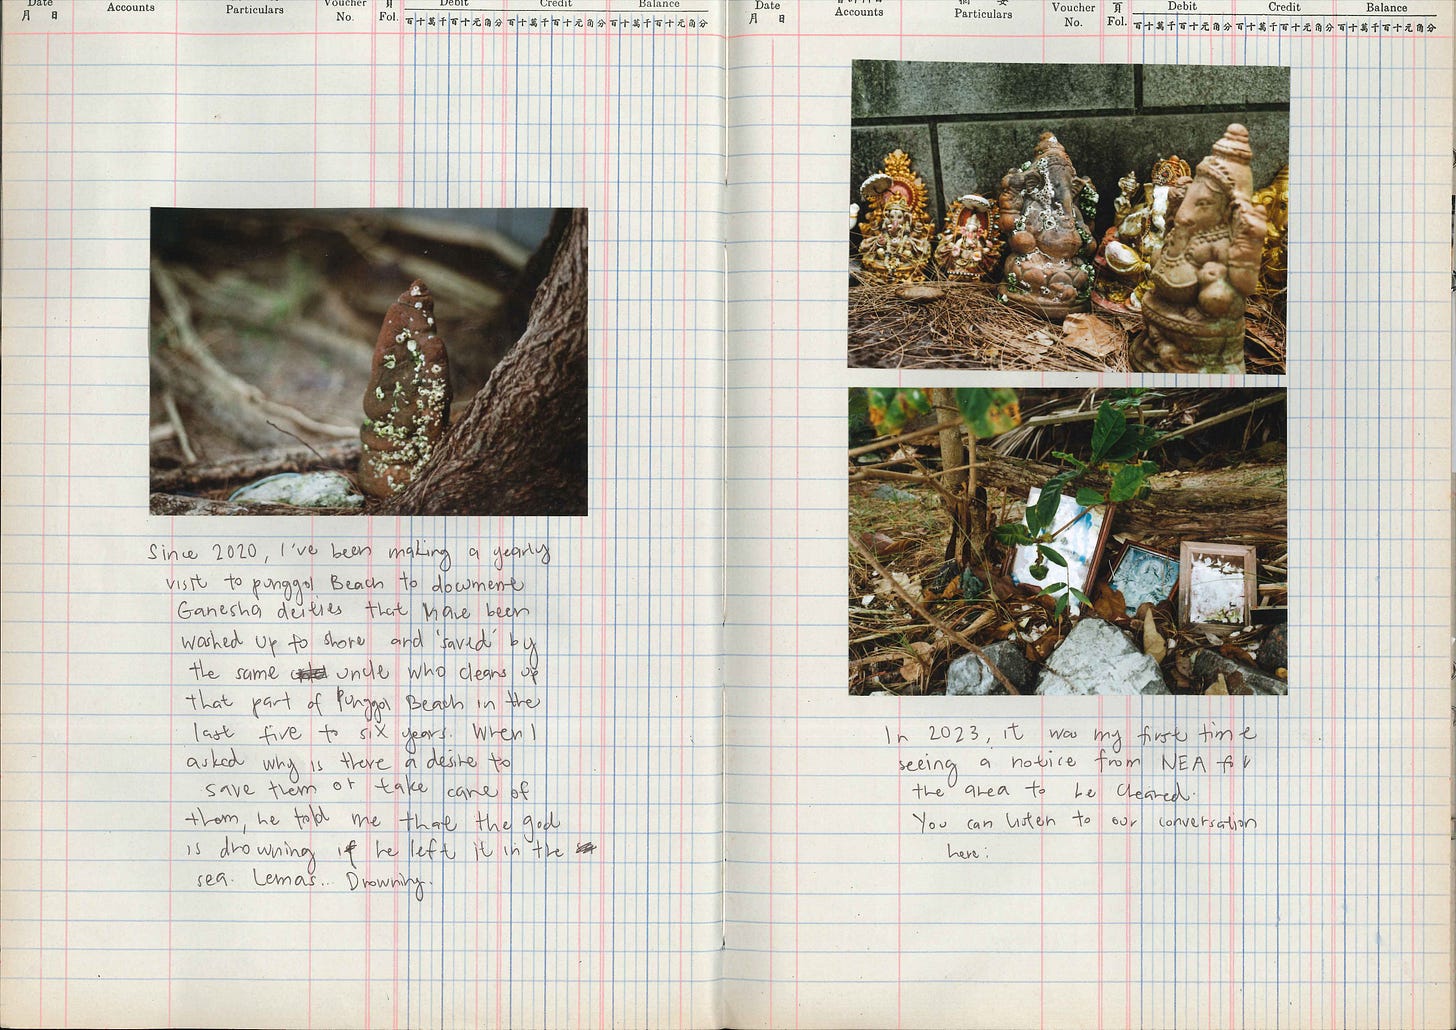 Date Accounts Particulars Voucher 頁 Debit Credit Balance
月 日 No. Fol. 百十萬千百十元角分 百十萬千百十元角分 百十萬千百十元角分
Since 2020, I've been making a yearly
visit to punggol Beach to document
Ganesha deities that have been
washed up to shore and 'saved' by
the same uncle who cleans up
that part of Punggol Beach in the
last five to six years. When I
asked why is there a desire to
save them or take care of
them, he told me that the god
is drowning if he left it in the
sea. Lemas... Drowning.
Date Accounts 摘 要 Voucher 頁 Debit Credit Balance
月 日 Particulars No. Fol. 百十萬千百十元角分 百十萬千百十元角分 百十萬千百十元角分
In 2023, it was my first time
seeing a notice from NEA for
the area to be cleared.
You can listen to our conversation
here: